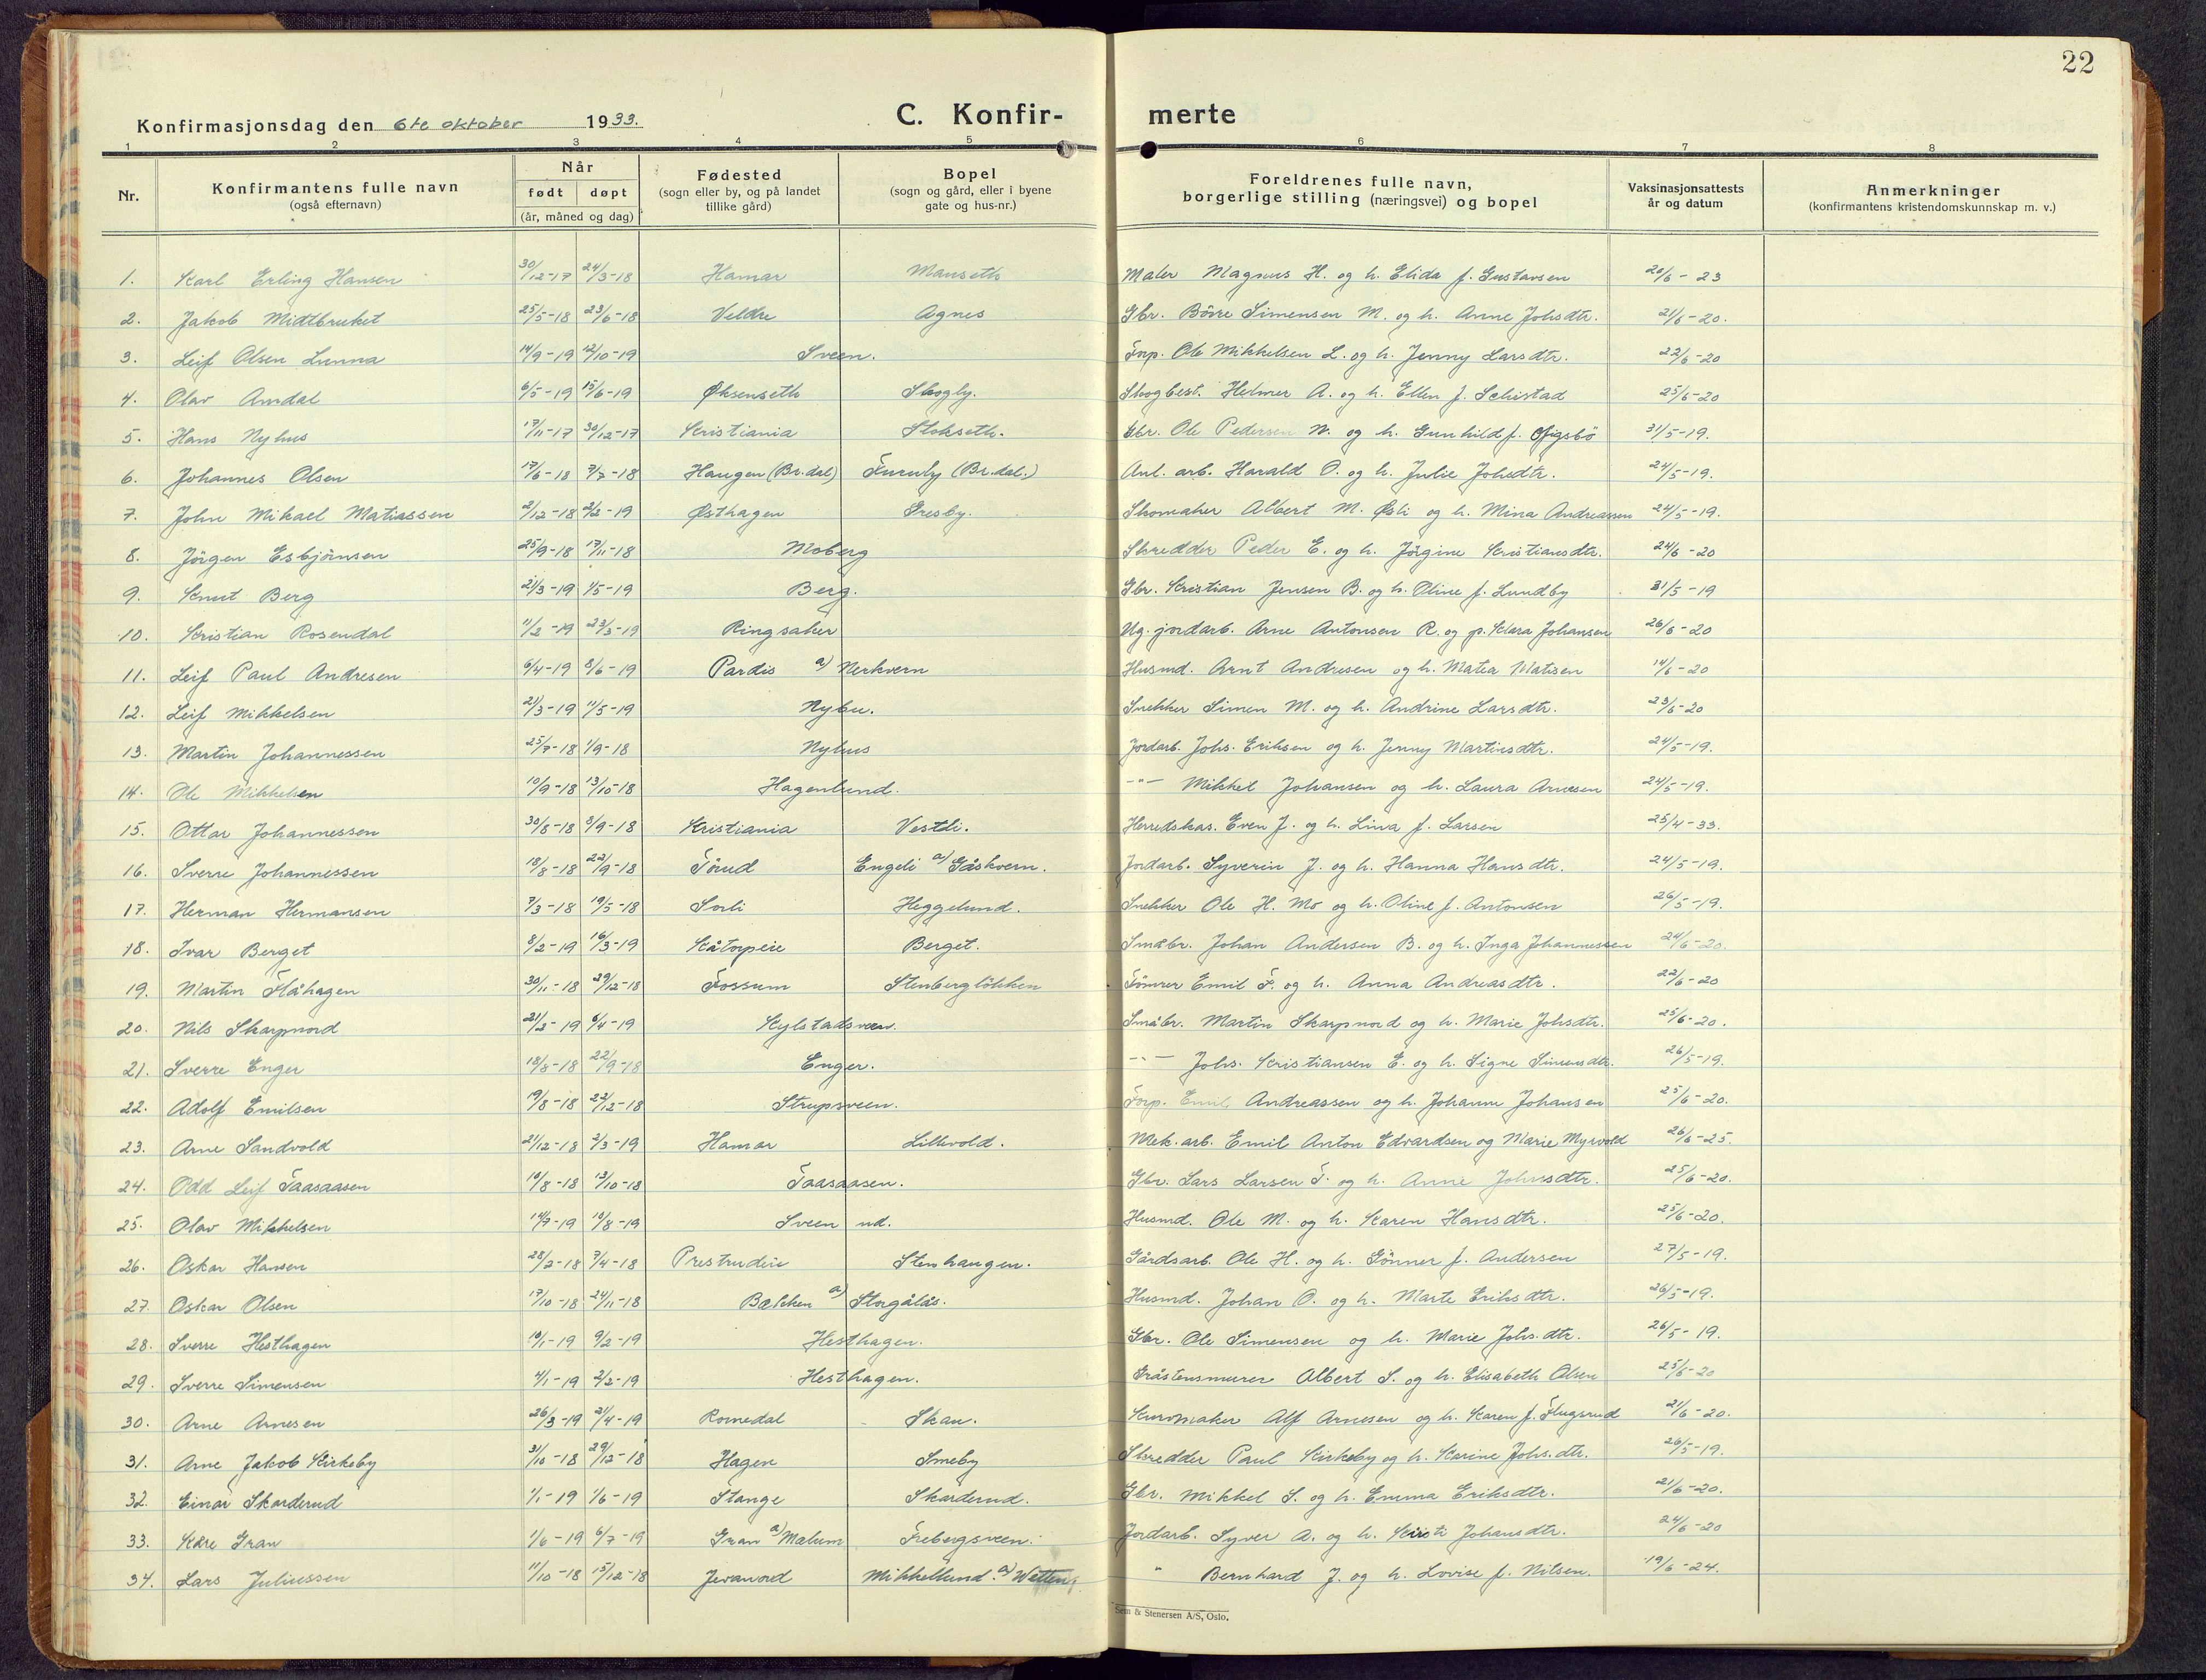 22
Konfirmasjonsdag den 6te oktober 1933.
C. Konfir-
merte
1 2 3 4 5 6 7 8
Nr.
Konfirmantens fulle navn
(også efternavn)
Når
født døpt
(år, måned og dag)
Fødested
(sogn eller by, og på landet
tillike gård)
Bopel
(sogn og gård, eller i byene
gate og hus-nr.)
Foreldrenes fulle navn,
borgerlige stilling (næringsvei) og bopel
Vaksinasjonsattests
år og datum
Anmerkninger
(konfirmantens kristendomskunnskap m. v.)
1. Karl Erling Hansen 30/12-17 24/3-18 Hamar Mauseth Maler Magnus H. og h. Elida f. Gustavsen 20/6-23
2. Jakob Midtbruket 25/5-18 23/6-18 Veldre Agnes Gbr. Börre Simensen M. og h. Anne Johsdtr. 21/6-20.
3. Leif Olsen Lunna 14/9-19 12/10-19 Sveen. Forp. Ole Mikkelsen L. og h. Jenny Larsdtr. 22/6-20
4. Olav Amdal 6/5-19 15/6-19 Øksenseth Skogly. Skogbest. Helmer A. og h. Ellen f. Schistad 25/6-20
5. Hans Nyhus 17/11-17 30/12-17 Kristiania Stokseth. Gbr. Ole Pedersen N. og h. Gunhild f. 31/5-19.
6. Johannes Olsen 17/6-18 7/7-18 Haugen (Br.dal) Furuly (Br.dal.) Anl. arb. Harald O. og h. Julie Johsdtr. 24/5-19.
7. John Mikael Matiassen 2/12-18 2/2-19 Østhagen Gresby. Skomaker Albert M. Østli og h. Mina Andreassen 24/5-19.
8. Jörgen Esbjörnsen 25/9-18 17/11-18 Moberg Skredder Peder E. og h. Jörgine Kristiansdtr. 24/6-20
9. Knut Berg 21/3-19 1/5-19 Berg. Gbr. Kristian Jensen B. og h. Oline f. Lundby 31/5-19
10. Kristian Rosendal 11/2-19 23/3-19 Ringsaker Ug. jordarb. Arne Antonsen R. og p. Klara Johansen 26/6-20
11. Leif Paul Andresen 6/4-19 8/6-19 Pardis a/ Nerkvern Husmd. Arnt Andresen og h. Matea Matisen 14/6-20
12. Leif Mikkelsen 21/3-19 11/5-19 Nybu. Snekker Simen M. og h. Andrine Larsdtr. 23/6-20
13. Martin Johannessen 25/7-18 1/9-18 Nyhus Jordarb. Johs. Eriksen og h. Jenny Martinsdtr. 24/5-19.
14. Ole Mikkelsen 10/9-18 13/10-18 Hagenlund. -"- Mikkel Johansen og h. Laura Arnesen 24/5-19.
15. Ottar Johannessen 30/8-18 8/9-18 Kristiania Vestli. Herredskas. Even J. og h. Lina f. Larsen 25/4-33.
16. Sverre Johannessen 18/8-18 22/9-18 Törud Engeli a/ Gåskvern. Jordarb. Syverin J. og h. Hanna Hansdtr. 24/5-19.
17. Herman Hermansen 7/3-18 19/5-18 Sorli Heggelund. Snekker Ole H. Mo og h. Oline f. Antonsen 26/5-19.
18. Ivar Berget 8/2-19 16/3-19 Kåtorpeie Berget. Småbr. Johan Andersen B. og h. Inga Johannessen 24/6-20.
19. Martin Flåhagen 30/11-18 29/12-18 Fossum Stenberglökken Tömrer Emil F. og h. Anna Andreasdtr. 22/6-20
20. Nils Skarpnord 21/2-19 6/4-19 Kylstadsveen. Småbr. Martin Skarpnord og h. Marie Johsdtr. 25/6-20.
21. Sverre Enger 18/8-18 22/9-18 Enger. -"- Johs. Kristiansen E. og h. Signe Simensdtr. 26/5-19.
22. Adolf Emilsen 19/8-18 22/12-18 Strupsveen. Forp. Emil Andreassen og h. Johanne Johansen 25/6-20.
23. Arne Sandvold 21/12-18 2/3-19 Hamar Lillevold. Mek. arb. Emil Anton Edvardsen og Marie Myrvold 26/6-25.
24. Odd Leif Taasaasen 10/8-18 13/10-18 Taasaasen. Gbr. Lars Larsen T. og h. Anne Johnsdtr. 25/6-20.
25. Olav Mikkelsen 14/7-19 10/8-19 Sveen nd. Husmd. Ole M. og h. Karen Hansdtr. 25/6-20.
26. Oskar Hansen 28/2-18 7/4-18 Prestrudeie Stenhaugen. Gårdsarb. Ole H. og h. Gönner f. Andersen 27/5-19.
27. Oskar Olsen 17/10-18 24/11-18 Bakken a/ Storgålås. Husmd. Johan O. og h. Marte Eriksdtr. 26/5-19.
28. Sverre Hesthagen 10/1-19 9/2-19 Hesthagen. Gbr. Ole Simensen og h. Marie Johs.dtr. 26/5-19.
29. Sverre Simensen 4/1-19 2/2-19 Hesthagen. Gråstensmurer Albert S. og h. Elisabeth Olsen 25/6-20
30. Arne Arnesen 26/3-19 21/4-19 Romedal Skau. Kurvmaker Alf Arnesen og h. Karen f. Flugsrud 21/6-20.
31. Arne Jakob Kirkeby 31/10-18 29/12-18 Hagen Smeby Skredder Paul Kirkeby og h. Karine Johs.dtr. 26/5-19.
32. Einar Skarderud 1/1-19 1/6-19 Stange Skarderud. Gbr. Mikkel S. og h. Emma Eriksdtr. 21/6-20.
33. Kåre Gran 1/6-19 6/7-19 Gran a/ Mælum Frebergsveen. Jordarb. Syver A. og h. Kristi Johansdtr. 24/6-20
34. Lars Juliussen 11/10-18 15/12-18 Jevanord Mikkellund a/ Wetten. " Bernhard J. og h. Lovise f. Nilsen. 19/6-24.
Sem & Stenersen A/S, Oslo.